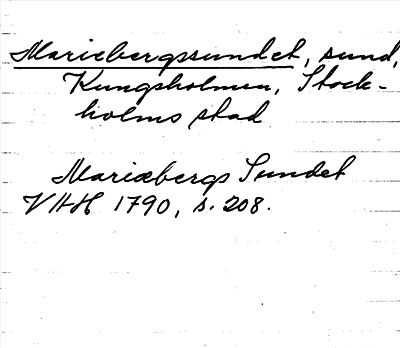 Mariebergssundet, sund,
Kungsholmen, Stock-
holms stad
Mariæbergs Sundet
VHH 1790, s. 208.